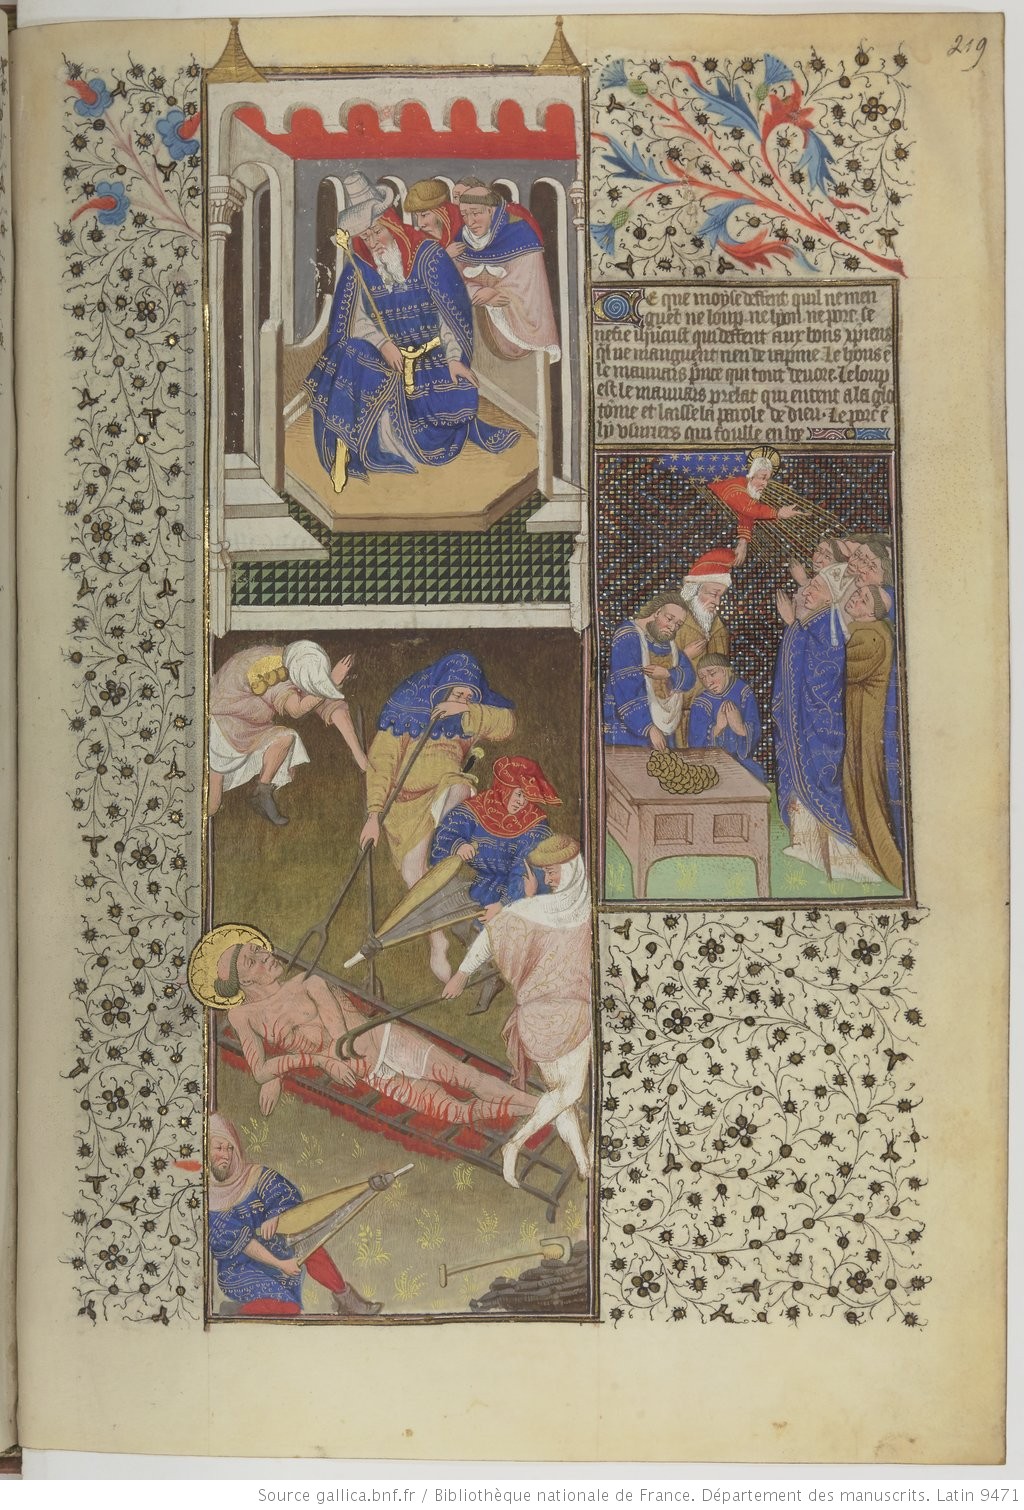 219
Ce que moyse deffent quil ne men
guent ne loup. ne lyon. ne porc. se
nefie ihucrist qui deffent aux bons xpiens
qil ne manguent rien de rapine. Le lyons e
le mauuais pnce qui tout deuore. Le loup
est le mauuais prelat qui entent a la glo
tonie et laisse la parole de dieu. Le porc e
ly vsuriers qui foulle en
Source gallica.bnf.fr / Bibliothèque nationale de France. Département des manuscrits. Latin 9471